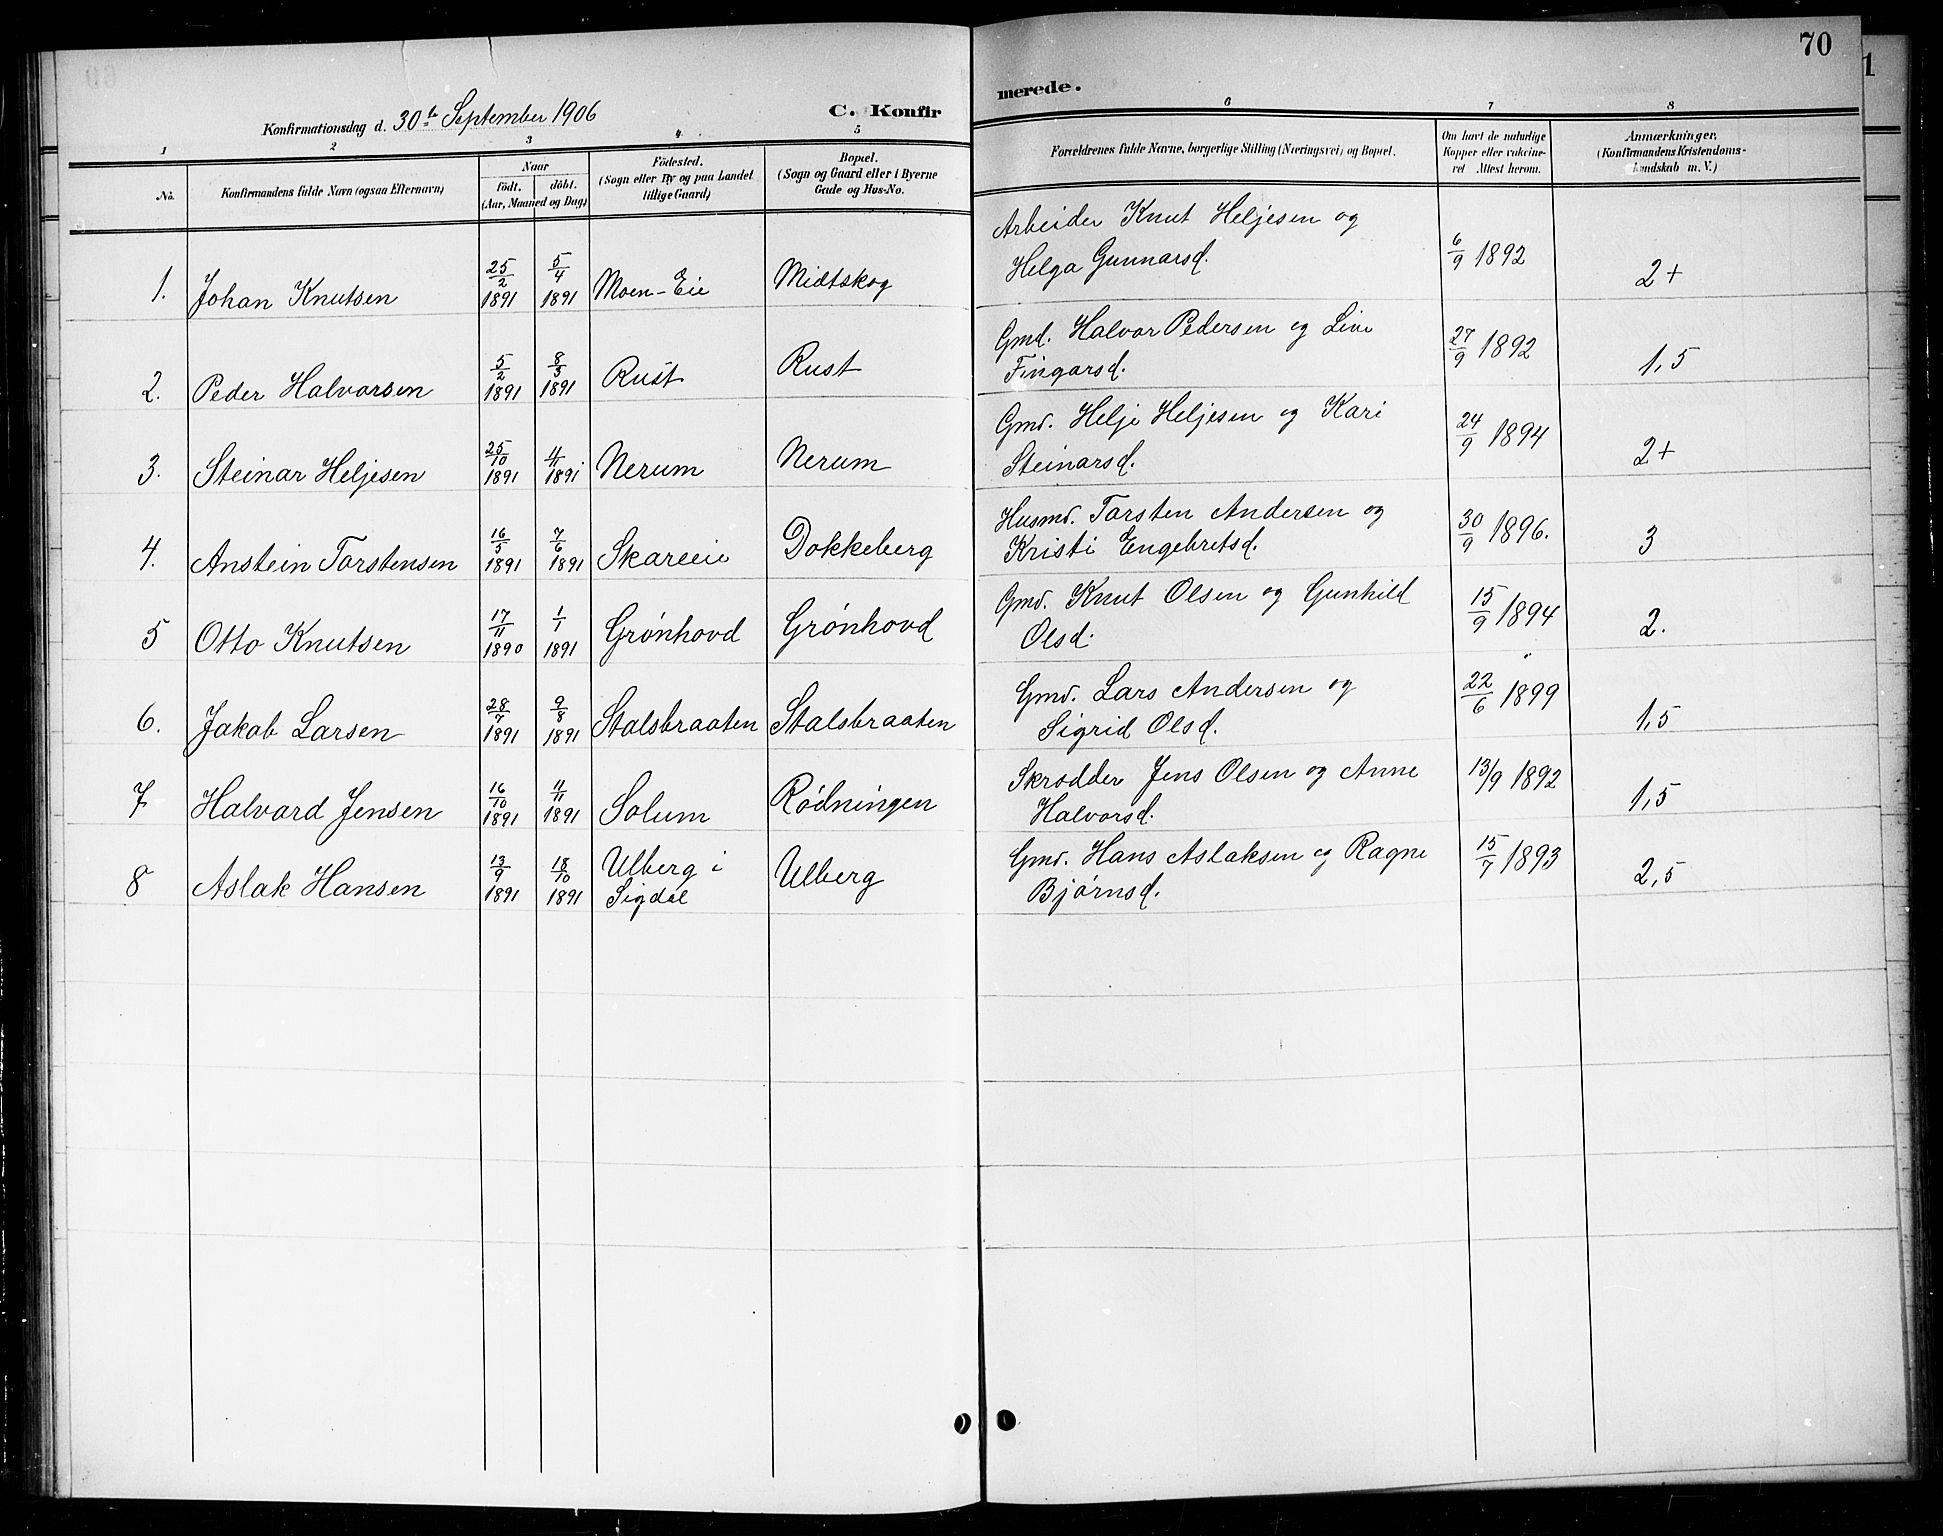 70
1
Konfirmationsdag d. 30te September 1906
C. Konfir
merede.
1 2 3 4 5 6 7 8
No. Konfirmandens fulde Navn (ogsaa Efternavn)
Naar
født. døbt.
(Aar, Maaned og Dag)
Fødested.
(Sogn eller By og paa Landet
tillige Gaard)
Bopæl.
(Sogn og Gaard eller i Byerne
Gade og Hus-No.
Forældrenes fulde Navne, borgerlige Stilling (Næringsvei) og Bopæl.
Om havt de naturlige
Kopper eller vakcine-
ret Attest herom.
Anmærkninger.
(Konfirmandens Kristendoms-
kundskab m. V.)
1. Johan Knutsen 25/2 1891 5/4 1891 Moen-Eie Midtskog Arbeider Knut Heljesen og
Helga Gunnarsd. 6/9 1892 2+
2. Peder Halvorsen 5/2 1891 8/3 1891 Rust Rust Gmd. Halvor Pedersen og Live
Fingarsd. 27/9 1892 1,5
3. Steinar Heljesen 25/10 1891 4/11 1891 Nerum Nerum Gmd. Helje Heljesen og Kari
Steinarsd. 24/9 1894 2+
4. Anstein Torstensen 16/5 1891 7/6 1891 Skareeie Dokkeberg Husmd. Torsten Andersen og
Kristi Engebretsd. 30/9 1896. 3
5 Otto Knutsen 17/11 1890 1/1 1891 Grønhovd Grønhovd Gmd. Knut Olsen og Gunhild
Olsd. 15/9 1894 2.
6. Jakob Larsen 28/7 1891 9/8 1891 Stalsbraaten Stalsbraaten Gmd. Lars Andersen og
Sigrid Olsd. 22/6 1899 1,5
7 Halvard Jensen 16/10 1891 11/11 1891 Solum Rødningen Skrædder Jens Olsen og Anne
Halvorsd. 13/9 1892 1,5
8 Aslak Hansen 13/9 1891 18/10 1891 Ulberg i
Sigdal Ulberg Gmd. Hans Aslaksen og Ragne
Bjørnsd. 15/7 1893 2,5